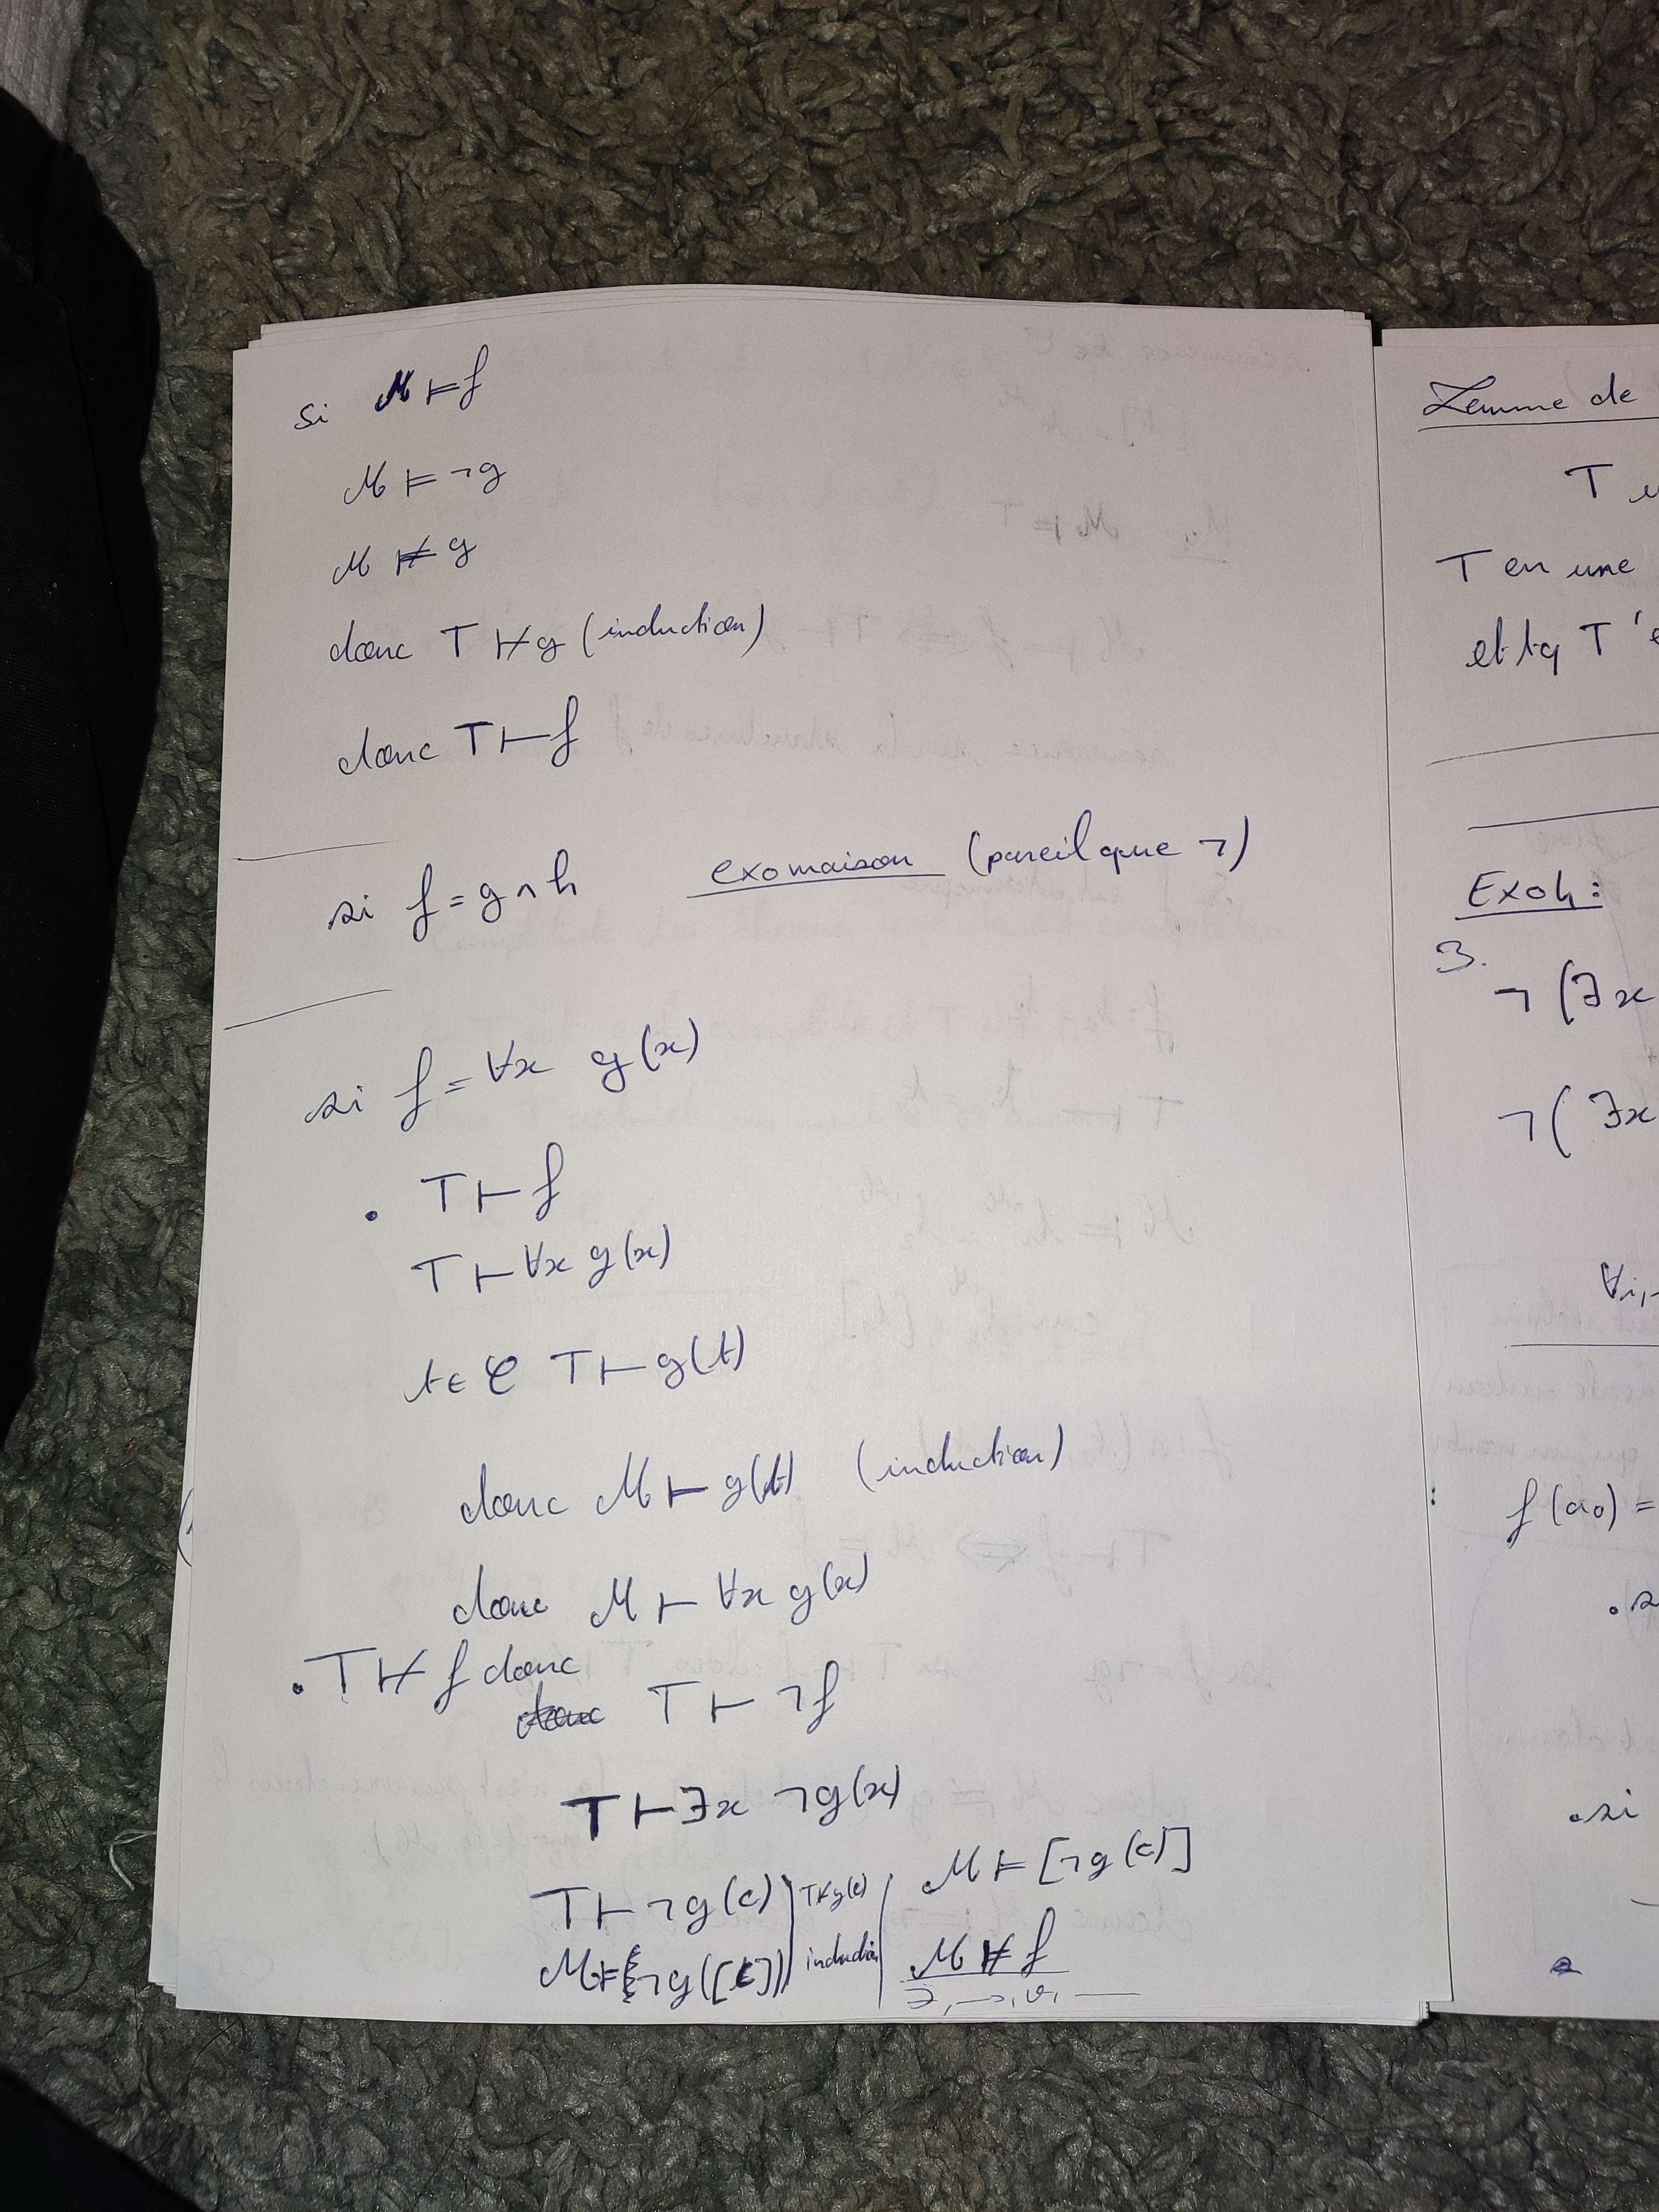 si M ⊨ f
M ⊨ ¬g
M ⊭ g
donc T ⊬ g (induction)
donc T ⊢ f
si f = g ∧ h exo maison (pareil que ¬)
si f = ∀x g(x)
. T ⊢ f
T ⊢ ∀x g(x)
t ∈ 𝒞 T ⊢ g(t)
donc M ⊢ g(t) (induction)
donc M ⊢ ∀x g(x)
. T ⊬ f donc
donc T ⊢ ¬f
T ⊢ ∃x ¬g(x)
T ⊢ ¬g(c) | T ⊬ g(c) | M ⊨ [¬g(c)]
M ⊨ ¬g([c]) | induction | M ⊭ f
Lemme de
T
T en une
et tq T'
Exo 4:
3.
¬(∃x
¬(∃x
∀i,
f(a₀) =
.si